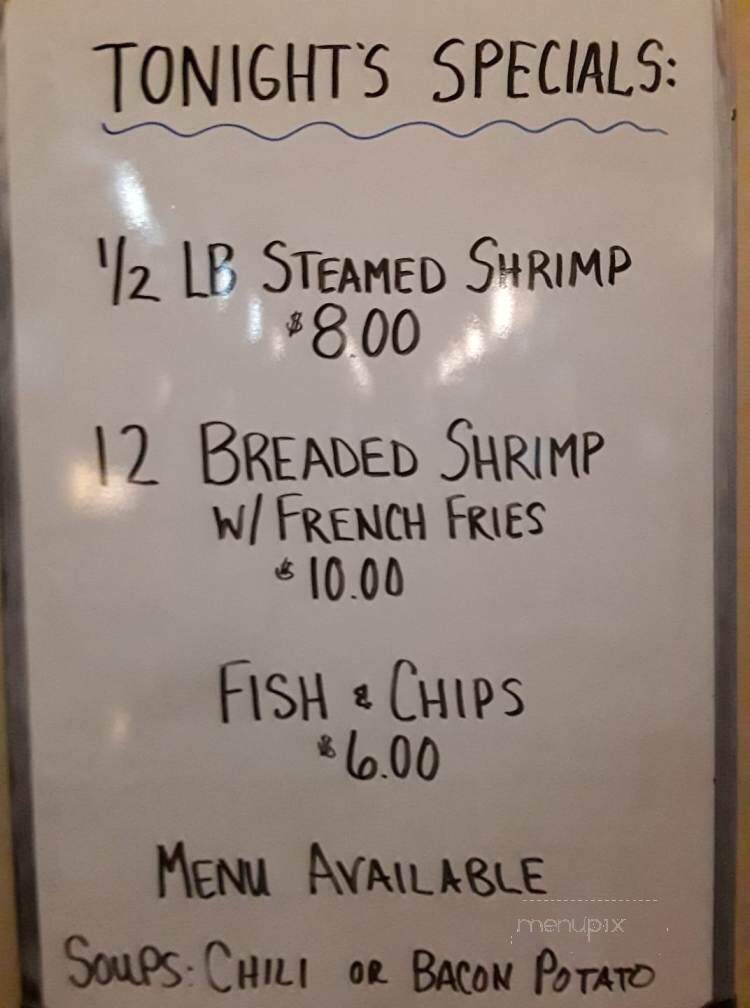 TONIGHT'S SPECIALS:
1/2 LB STEAMED SHRIMP
$8.00
12 BREADED SHRIMP
W/ FRENCH FRIES
$10.00
FISH & CHIPS
$6.00
MENU AVAILABLE
menupix
SOUPS: CHILI OR BACON POTATO